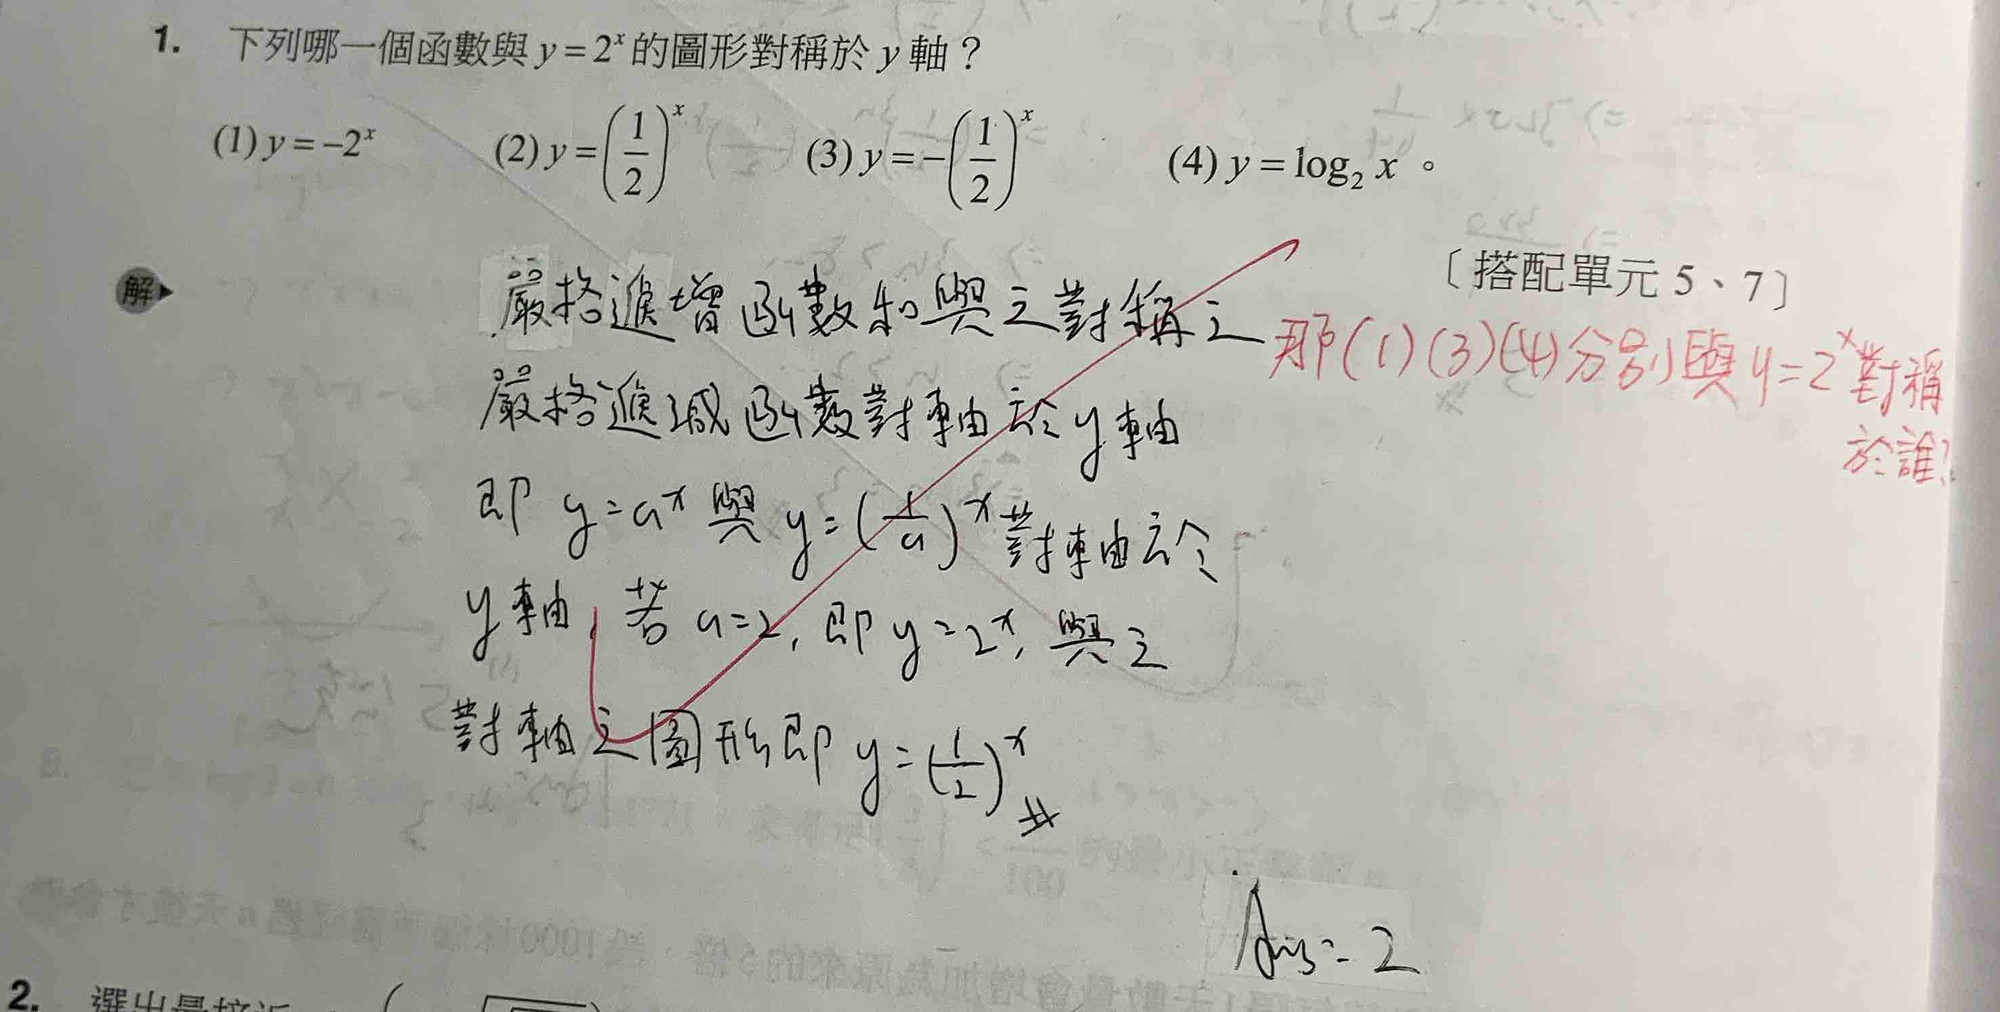 1. 下列哪一個函數與 y = 2^x 的圖形對稱於 y 軸？
(1) y = -2^x (2) y = (1/2)^x (3) y = -(1/2)^x (4) y = log₂ x。
〔搭配單元 5、7〕
解
嚴格遞增函數和與之對稱之
嚴格遞減函數對軸於 y 軸
即 y = a^x 與 y = (1/a)^x 對軸於
y 軸, 若 a = 2, 即 y = 2^x, 與之
對軸之圖形即 y = (1/2)^x #
那 (1) (3) (4) 分別與 y = 2^x 對稱
於誰?
Ans = 2
2. 選出最接近